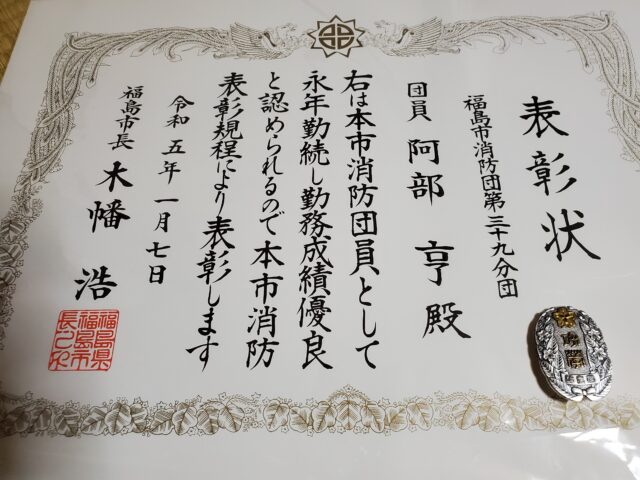 表彰状
福島市消防団第三十九分団
団員 阿部 亨 殿
右は本市消防団員として
永年勤続し勤務成績優良
と認められるので本市消防
表彰規程により表彰します
令和五年一月七日
福島市長 木幡 浩
福島県
福島市
長之印